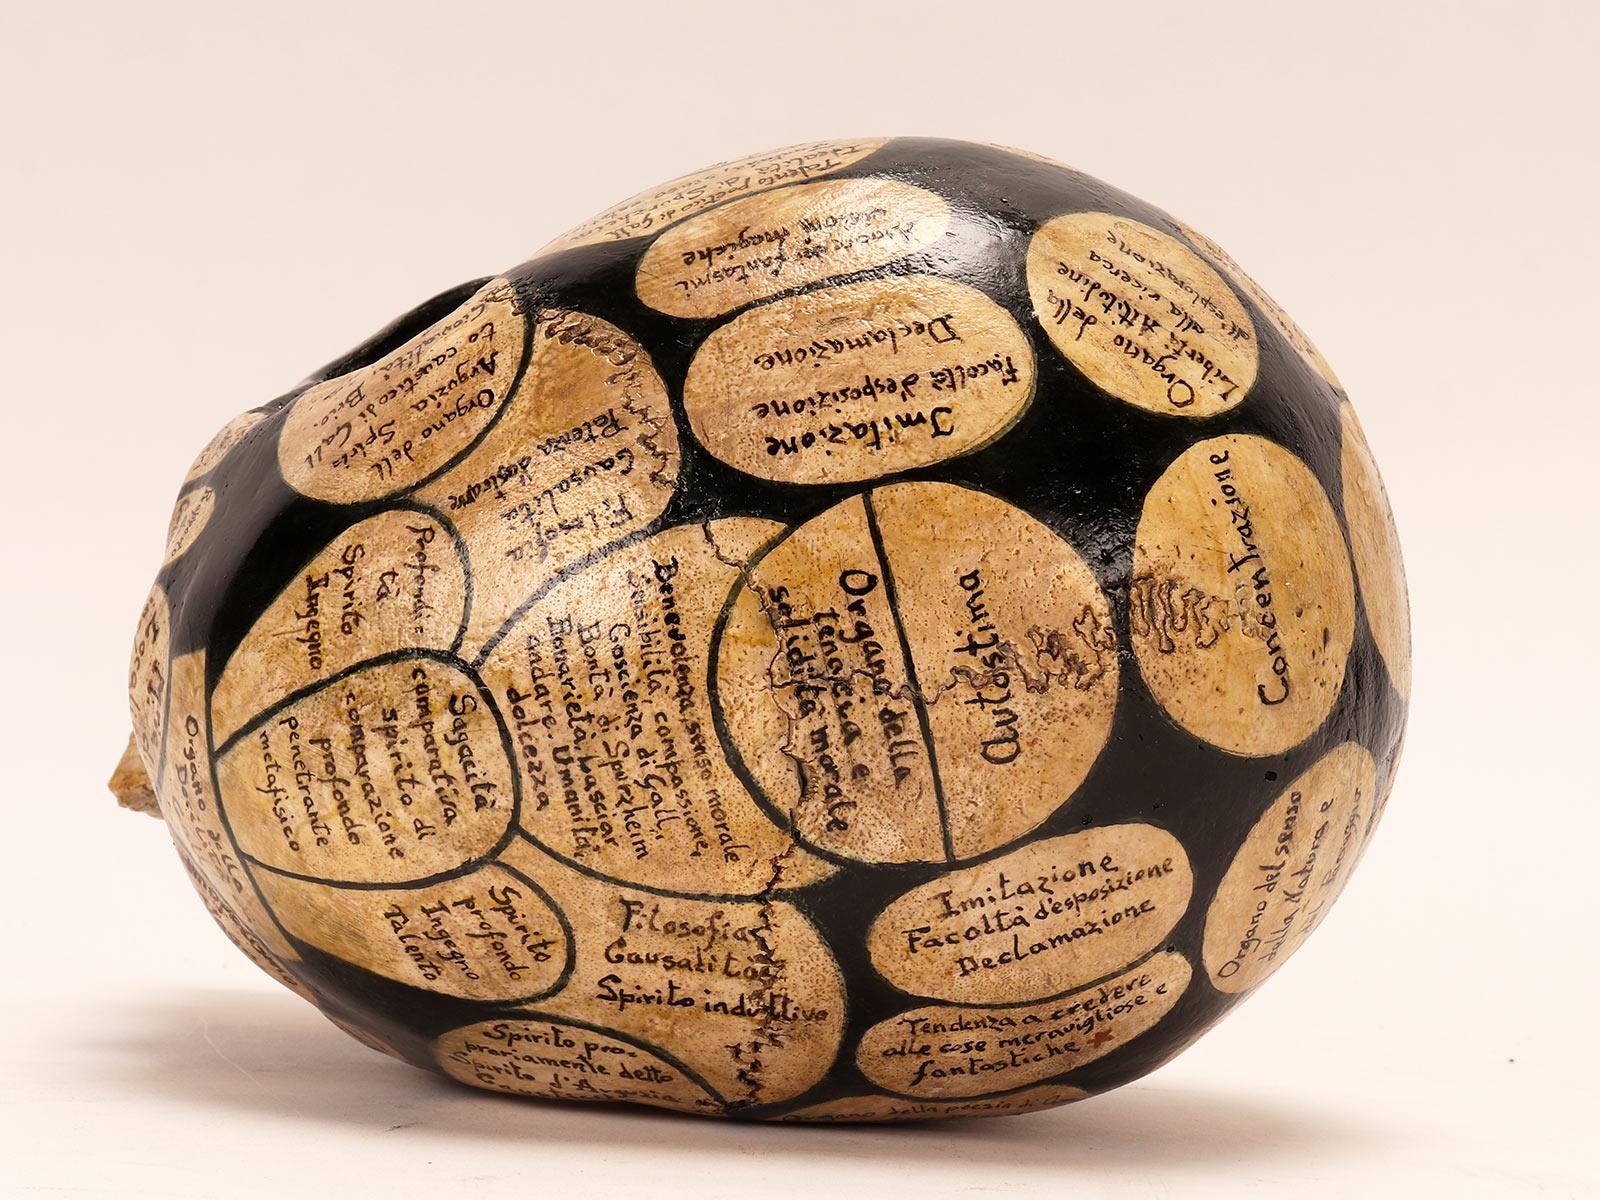 Talento poetico di Gall
Idealità di Spurzheim
fantasmi
visioni magiche
Imitazione
Facoltà d'esposizione
Declamazione
Organo della
Libertà Attitudine
alla ricerca
esplorazione
Organo dell
Arguzia Spiri
to caustico di Gall
Giovialità Brio
Filosofia
Causalità
Potenza
Profondi
tà
Spirito
Ingegno
Sagacità
comparativa
spirito di
comparazione
profondo
penetrante
metafisico
Benevolenza, senso morale
Sensibilità, compassione,
Coscienza di Gall,
Bontà di Spurzheim
Bonarietà, lasciar
andare, Umanità,
dolcezza
Organo della
tenacia e
solidità morale
Autostima
Concentrazione
Spirito
profondo
Ingegno
Talento
Filosofia
Causalità
Spirito induttivo
Spirito pro-
priamente detto
Spirito d'Arguzia
Imitazione
Facoltà d'esposizione
Declamazione
Tendenza a credere
alle cose meravigliose e
fantastiche
Organo del senso
della Natura e
del
Organo della poesia di
Organo della